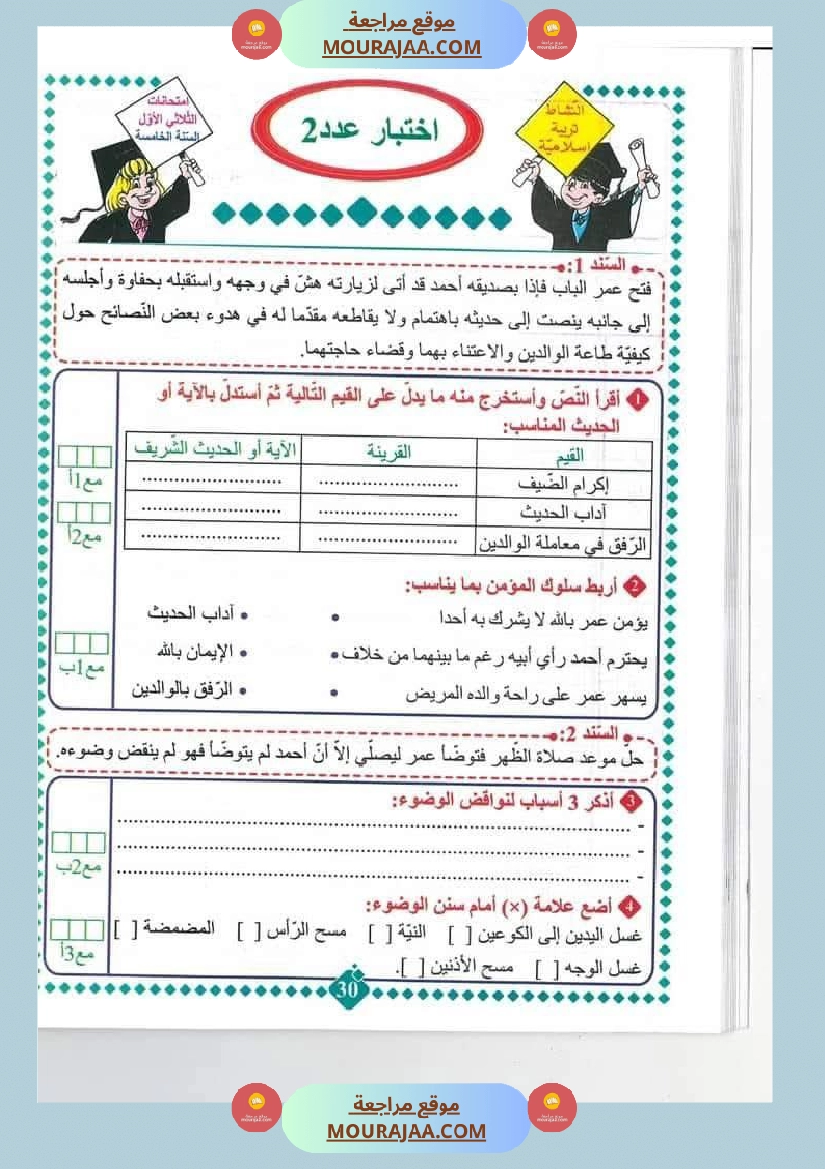 موقع مراجعة
MOURAJAA.COM
امتحانات
الثّلاثي الأوّل
السّنة الخامسة
اختبار عدد2
النّشاط
تربية
إسلاميّة
السّند 1:
فتح عمر الباب فإذا بصديقه أحمد قد أتى لزيارته هشّ في وجهه واستقبله بحفاوة وأجلسه
إلى جانبه ينصت إلى حديثه باهتمام ولا يقاطعه مقدّما له في هدوء بعض النّصائح حول
كيفيّة طاعة الوالدين والاعتناء بهما وقضاء حاجتهما.
1 أقرأ النّصّ وأستخرج منه ما يدلّ على القيم التّالية ثمّ أستدلّ بالآية أو
الحديث المناسب:
القيم القرينة الآية أو الحديث الشّريف
إكرام الضّيف .......................... ..........................
آداب الحديث .......................... ..........................
الرّفق في معاملة الوالدين .......................... ..........................
مع1أ
مع2أ
2 أربط سلوك المؤمن بما يناسب:
يؤمن عمر بالله لا يشرك به أحدا • • آداب الحديث
يحترم أحمد رأي أبيه رغم ما بينهما من خلاف • • الإيمان بالله
يسهر عمر على راحة والده المريض • • الرّفق بالوالدين
مع1ب
السّند 2:
حلّ موعد صلاة الظّهر فتوضّأ عمر ليصلّي إلاّ أنّ أحمد لم يتوضّأ فهو لم ينقض وضوءه.
3 أذكر 3 أسباب لنواقض الوضوء:
- ................................................................
- ................................................................
- ................................................................
مع2ب
4 أضع علامة (×) أمام سنن الوضوء:
غسل اليدين إلى الكوعين [ ] النيّة [ ] مسح الرّأس [ ] المضمضة [ ]
غسل الوجه [ ] مسح الأذنين [ ].
مع3أ
30
موقع مراجعة
MOURAJAA.COM